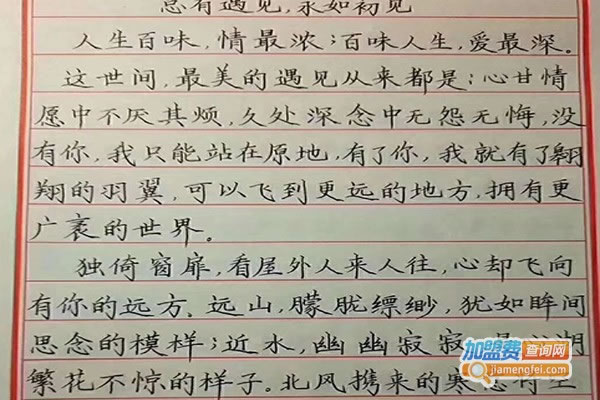 总有遇见，永如初见
人生百味，情最浓；百味人生，爱最深。
这世间，最美的遇见从来都是：心甘情
愿中不厌其烦，久处深念中无怨无悔，没
有你，我只能站在原地，有了你，我就有了翱
翔的羽翼，可以飞到更远的地方，拥有更
广袤的世界。
独倚窗扉，看屋外人来人往，心却飞向
有你的远方。远山，朦胧缥缈，犹如眸间
思念的模样；近水，幽幽寂寂，湖
繁花不惊的样子。北风携来的寒
加盟费查询网
jiamengfei.com